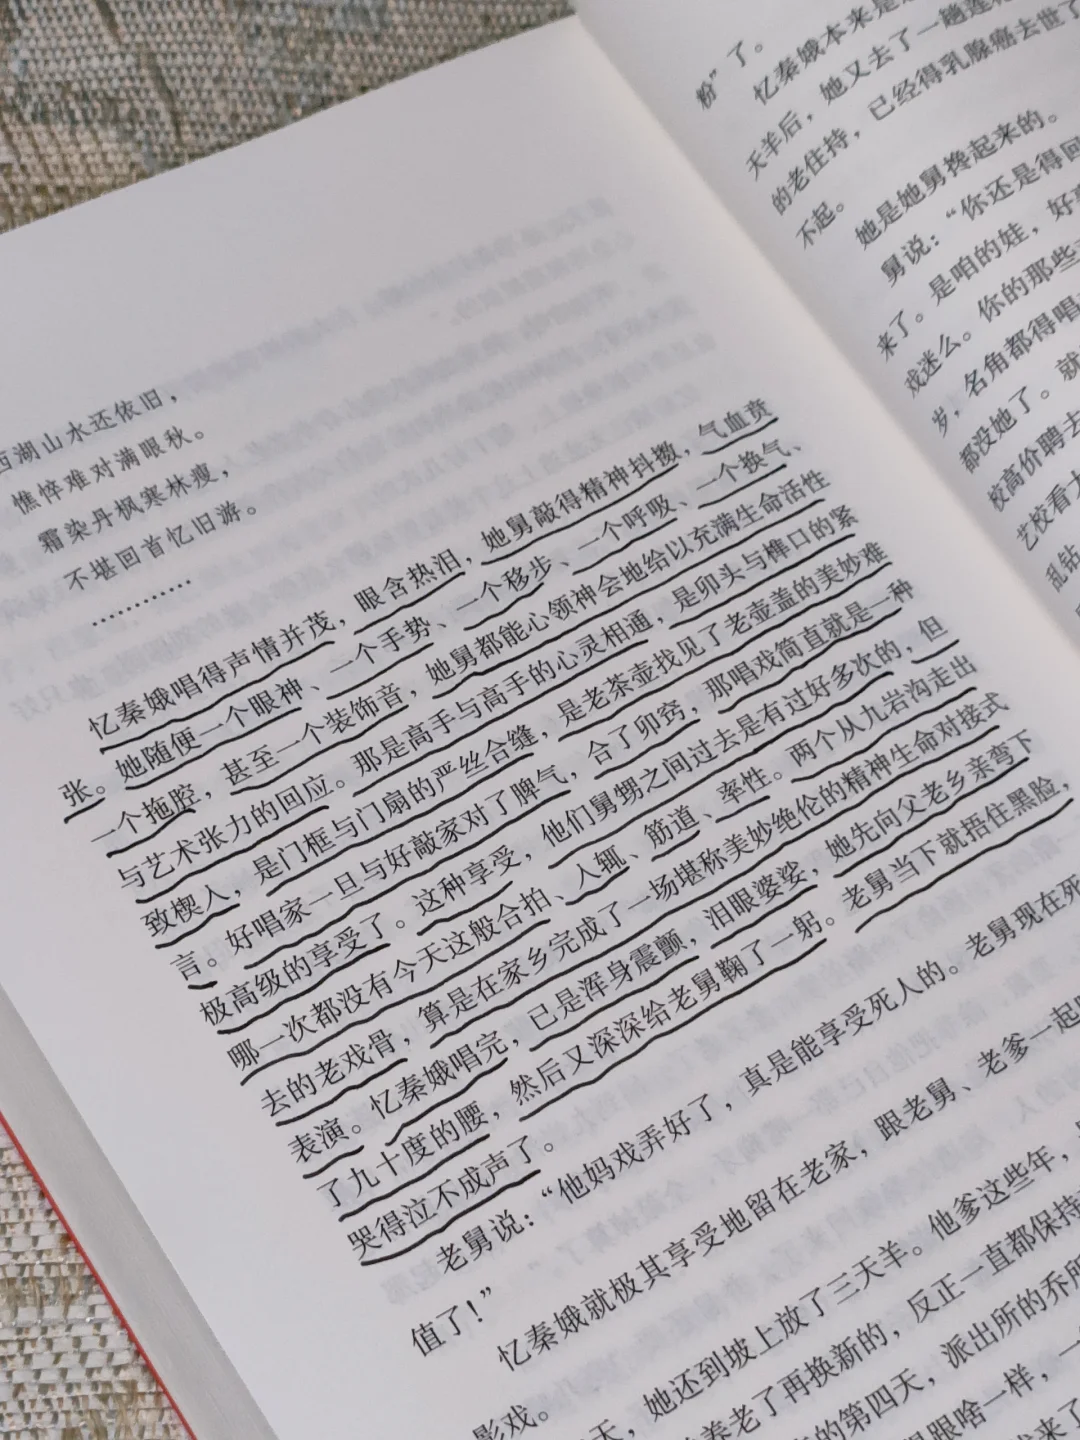 西湖山水还依旧，
憔悴难对满眼秋。
霜染丹枫寒林瘦，
不堪回首忆旧游。
…………
忆秦娥唱得声情并茂，眼含热泪，她舅敲得精神抖擞，气血贲
张。她随便一个眼神、一个手势、一个移步、一个呼吸、一个换气、
一个拖腔，甚至一个装饰音，她舅都能心领神会地给以充满生命活性
与艺术张力的回应。那是高手与高手的心灵相通，是卯头与榫口的紧
致楔入，是门框与门扇的严丝合缝，是老茶壶找见了老壶盖的美妙难
言。好唱家一旦与好敲家对了脾气，合了卯窍，那唱戏简直就是一种
极高级的享受了。这种享受，他们舅甥之间过去是有过好多次的，但
哪一次都没有今天这般合拍、入辄、筋道、率性。两个从九岩沟走出
去的老戏骨，算是在家乡完成了一场堪称美妙绝伦的精神生命对接式
表演。忆秦娥唱完，已是浑身震颤，泪眼婆娑，她先向父老乡亲弯下
了九十度的腰，然后又深深给老舅鞠了一躬。老舅当下就捂住黑脸，
哭得泣不成声了。
老舅说：“他妈戏弄好了，真是能享受死人的。老舅现在死
值了！”
忆秦娥就极其享受地留在老家，跟老舅、老爹一起
她还到坡上放了三天羊。他爹这些年，
养老了再换新的，反正一直都保持
的第四天，派出所的乔所
跟啥一样，一
影戏。
粉”了。
忆秦娥本来是
天羊后，她又去了一趟莲
的老住持，已经得乳腺癌去世了
不起。
她是她舅搀起来的。
舅说：“你还是得回
来了。是咱的娃，好
戏迷么。你的那些
岁，名角都得唱
都没她了。就
校高价聘去
艺校看大
乱钻